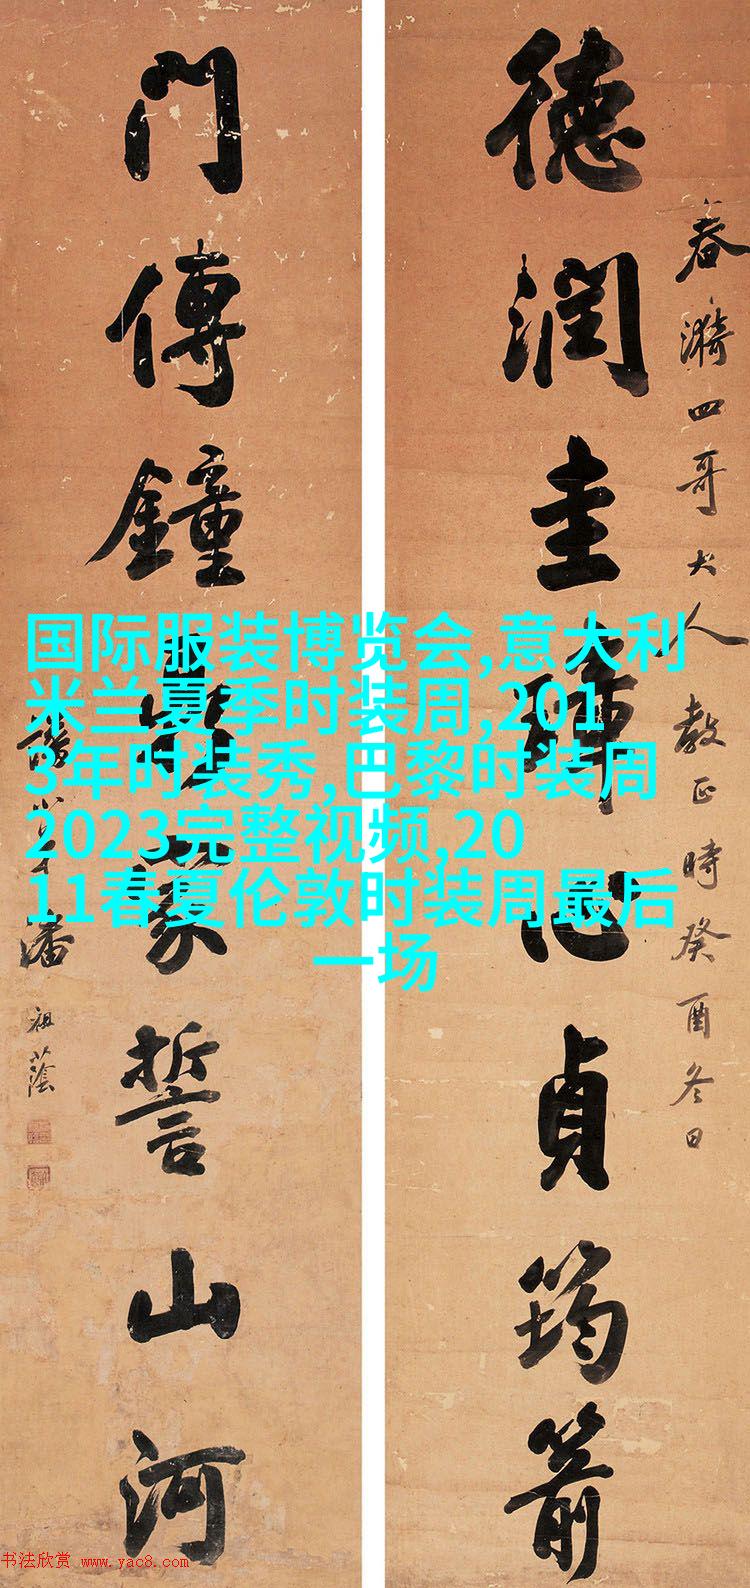 春漪四哥大人教正時癸酉冬日
德潤圭璋心貞筠箭
门傳鐘鼎家誓山河
弟潘祖蔭
国际服装博览会,意大利
米兰夏季时装周,201
3年时装秀,巴黎时装周
2023完整视频,20
11春夏伦敦时装周最后
一场
书法欣赏 www.yac8.com